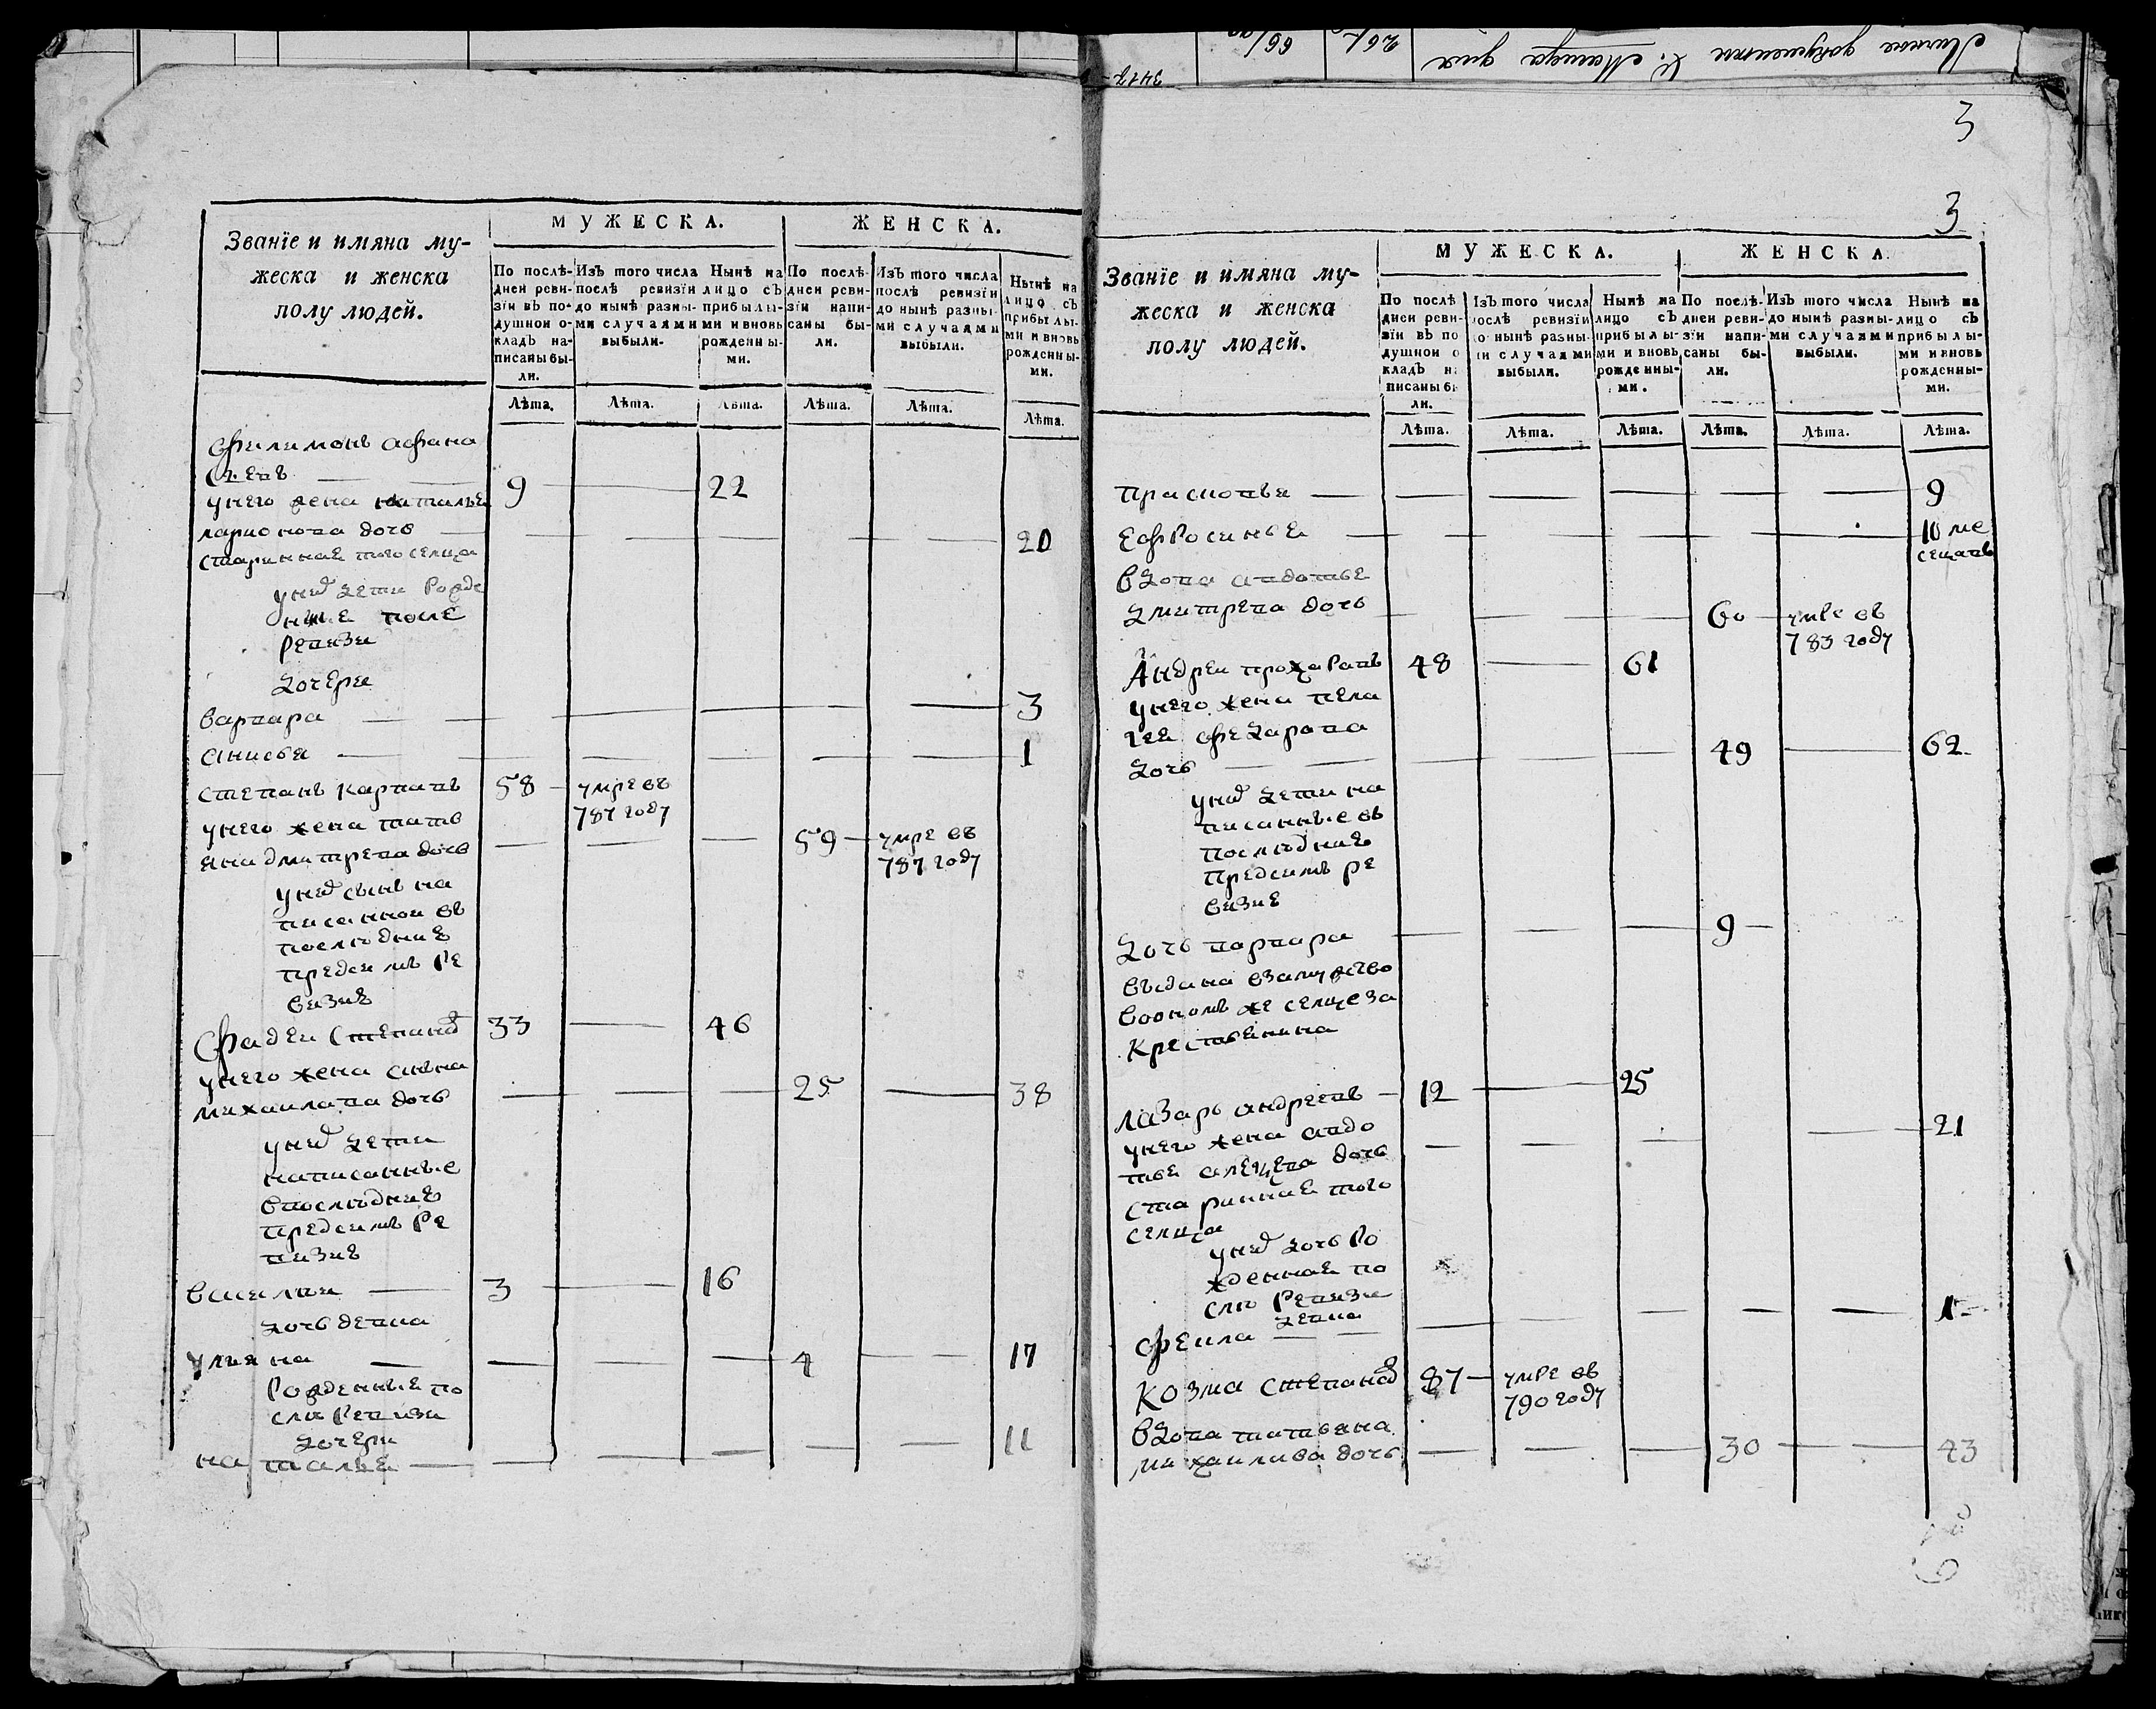 МУЖЕСКА.
ЖЕНСКА.
Званїе и имяна му-
жеска и женска
полу людей.
По послѣ-
днеи реви-
зїи въ по-
душнои о-
кладъ на-
писаны бы-
ли.
Изъ того числа
послѣ ревизїи
до нынѣ разны-
ми случаями
выбыли.
Нынѣ на
лицо съ
прибылы-
ми и вновь
рожденны-
ми.
По послѣ-
днеи реви-
зїи напи-
саны бы-
ли.
Изъ того числа
послѣ ревизїи
до нынѣ разны-
ми случаями
выбыли.
Нынѣ на
лицо съ
прибылы-
ми и вновь
рожденны-
ми.
Лѣта. Лѣта. Лѣта. Лѣта. Лѣта. Лѣта.
Филимонъ афана
сьевъ 9 22
унего жена наталья
ларионова дочь 20
стариннае того селца
унихъ дети рожде
нные после
ревизи
дочери
варвара 3
анисья 1
степанъ карпавъ 58 умре въ
787 году
унего жена татъ
яна дмитрева дочь 59 умре въ
787 году
унихъ сынъ на
писаннои въ
последнию
предсимъ ре
визию
Фадеи степановъ 33 46
унего жена анна
михаилава дочь 25 38
унихъ дети
написанные
впоследнию
предсимъ ре
визию
василеи 3 16
дочь девка
ульяна 4 17
рожденные по
сле ревизи
дочери
наталья 11
3417
261
66/90
3
3
МУЖЕСКА.
ЖЕНСКА
Званїе и имяна му-
жеска и женска
полу людей.
По послѣ
днеи реви-
зїи въ по
душнои о
кладъ на
писаны бы
ли.
Изъ того числа
послѣ ревизїи
до нынѣ разны-
ми случаями
выбыли.
Нынѣ на
лицо съ
прибылы-
ми и вновь
рожденны-
ми.
По послѣ-
днеи реви-
зїи напи-
саны бы-
ли.
Изъ того числа
до нынѣ разны-
ми случаями
выбыли.
Нынѣ на
лицо съ
прибылы-
ми и вновь
рожденны-
ми.
Лѣта. Лѣта. Лѣта. Лѣта. Лѣта. Лѣта.
прасковья 9
ефросинья 10 ме
сецавъ
вдова авдотье
дмитрева дочь 60 умре въ
783 году
Андреи прохаравъ 48 61
унего жена пела
гея федарава
дочь 49 62
унихъ дети на
писанные въ
последнию
предсимъ ре
визию
дочь варвара 9
выдана взамужство
воономъ же селце за
крестьянина
лазарь андреевъ 12 25
унего жена авдо
тья алексева дочь 21
стариннае того
селца
унихъ дочь ро
жденная по
сле ревизи
девка
фекла 1
Козма степановъ 87 умре въ
790 году
вдова татьяна
михаилава дочь 30 43